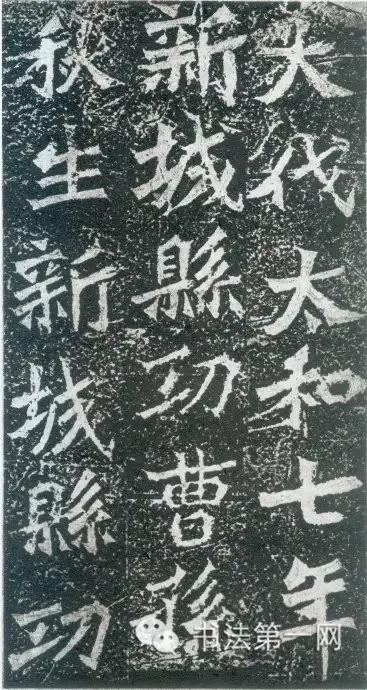 大代太和七年
新城縣功曹孫
秋生新城縣功
书法第一网